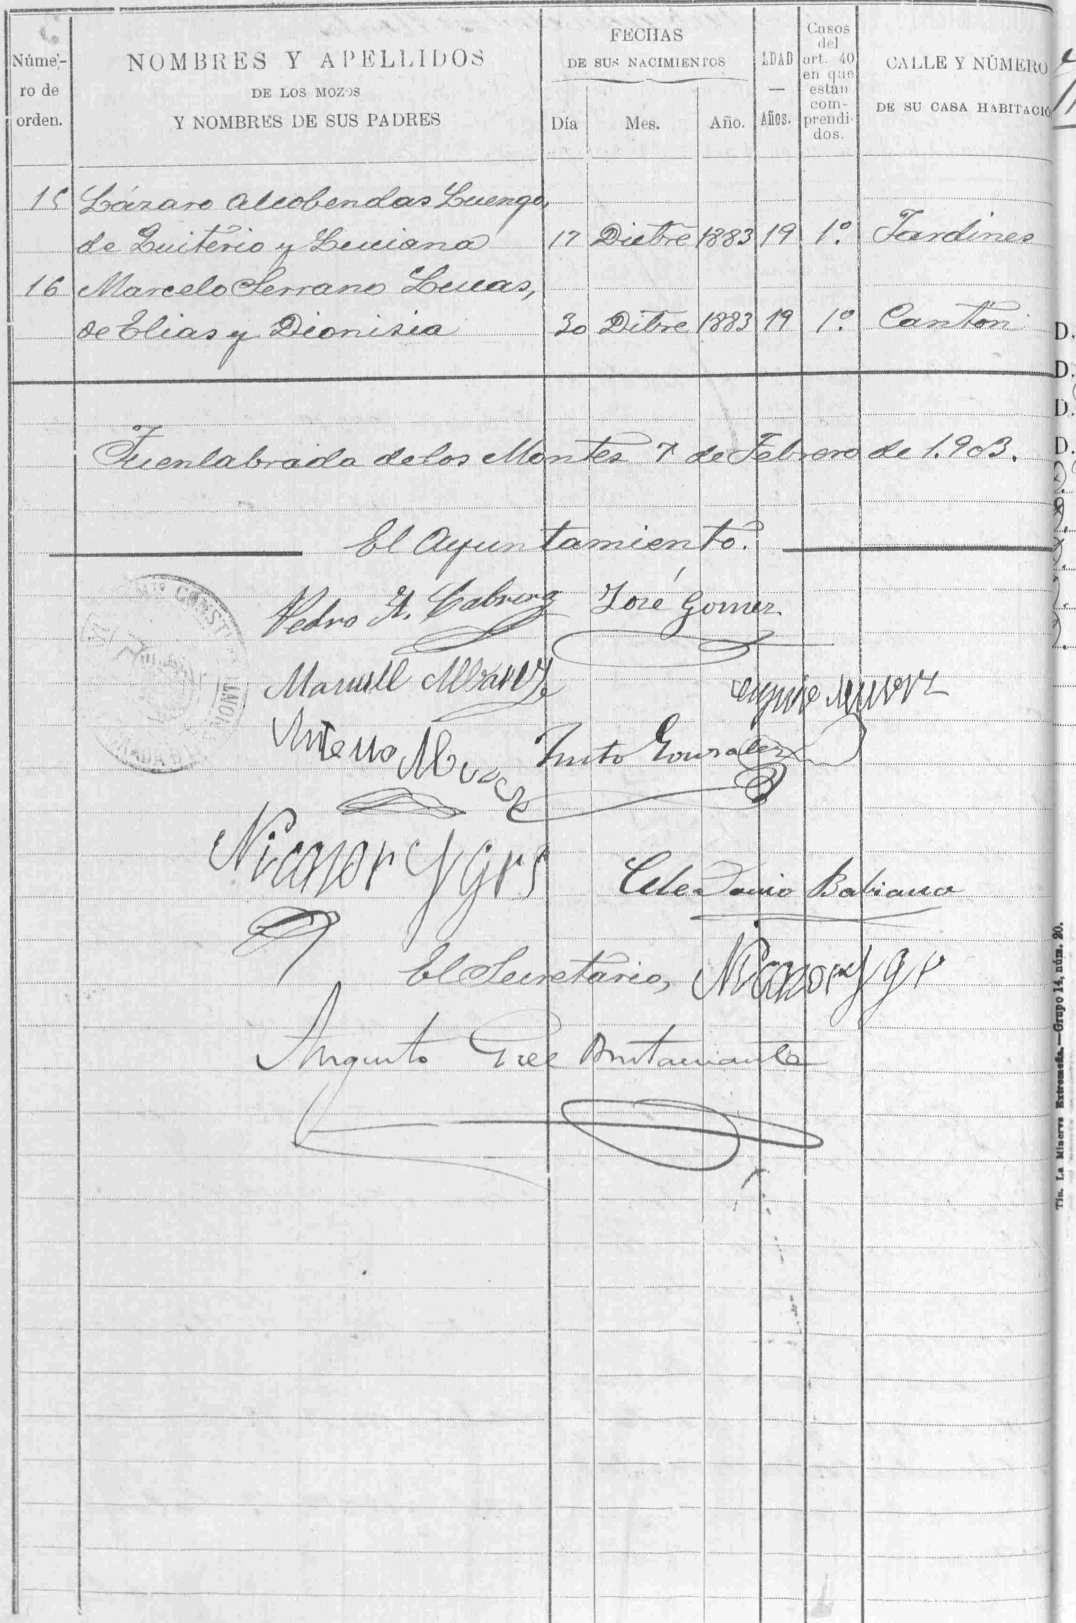 Núme-
ro de
orden.
NOMBRES Y APELLIDOS
DE LOS MOZOS
Y NOMBRES DE SUS PADRES
FECHAS
DE SUS NACIMIENTOS
Día
Mes.
Año.
EDAD
—
Años.
Casos
del
art. 40
en que
están
com-
prendi-
dos.
CALLE Y NÚMERO
DE SU CASA HABITACIÓ
15 Lázaro Alcobendas Luengo,
de Quiterio y Luciana 17 Dicbre 1883 19 1.º Jardines
16 Marcelo Serrano Lucas,
de Elias y Dionisia 30 Dibre 1883 19 1.º Canton
Fuenlabrada de los Montes 7 de Febrero de 1.903.
El Ayuntamiento.
Pedro A. Cabrera José Gomez
Manuell
Justo Gonzalez
Nicanor
Celedonio Babiano
El Secretario, Nicanor
Augusto Bustamante
D.
D.
D.
D.
Tip. La Minerva Extremeña.—Grupo 14, núm. 20.